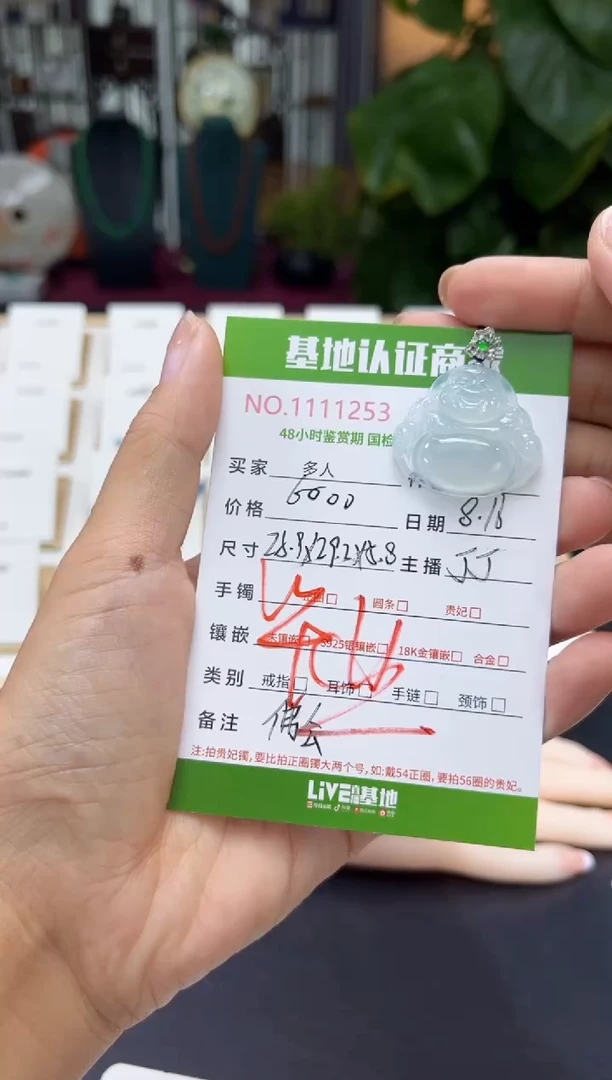 基地认证商
NO.1111253
48小时鉴赏期 国检
买家 多人
价格 6000 日期 8.18
尺寸 28.9x29.2x5.8 主播 JJ
手镯 正圈□ 圆条□ 贵妃□
镶嵌 无镶嵌□ S925银镶嵌□ 18K金镶嵌□ 合金□
类别 戒指□ 耳饰□ 手链□ 颈饰□
备注 佛公
注:拍贵妃镯,要比拍正圈镯大两个号,如:戴54正圈,要拍56圈的贵妃。
LiVE直播基地